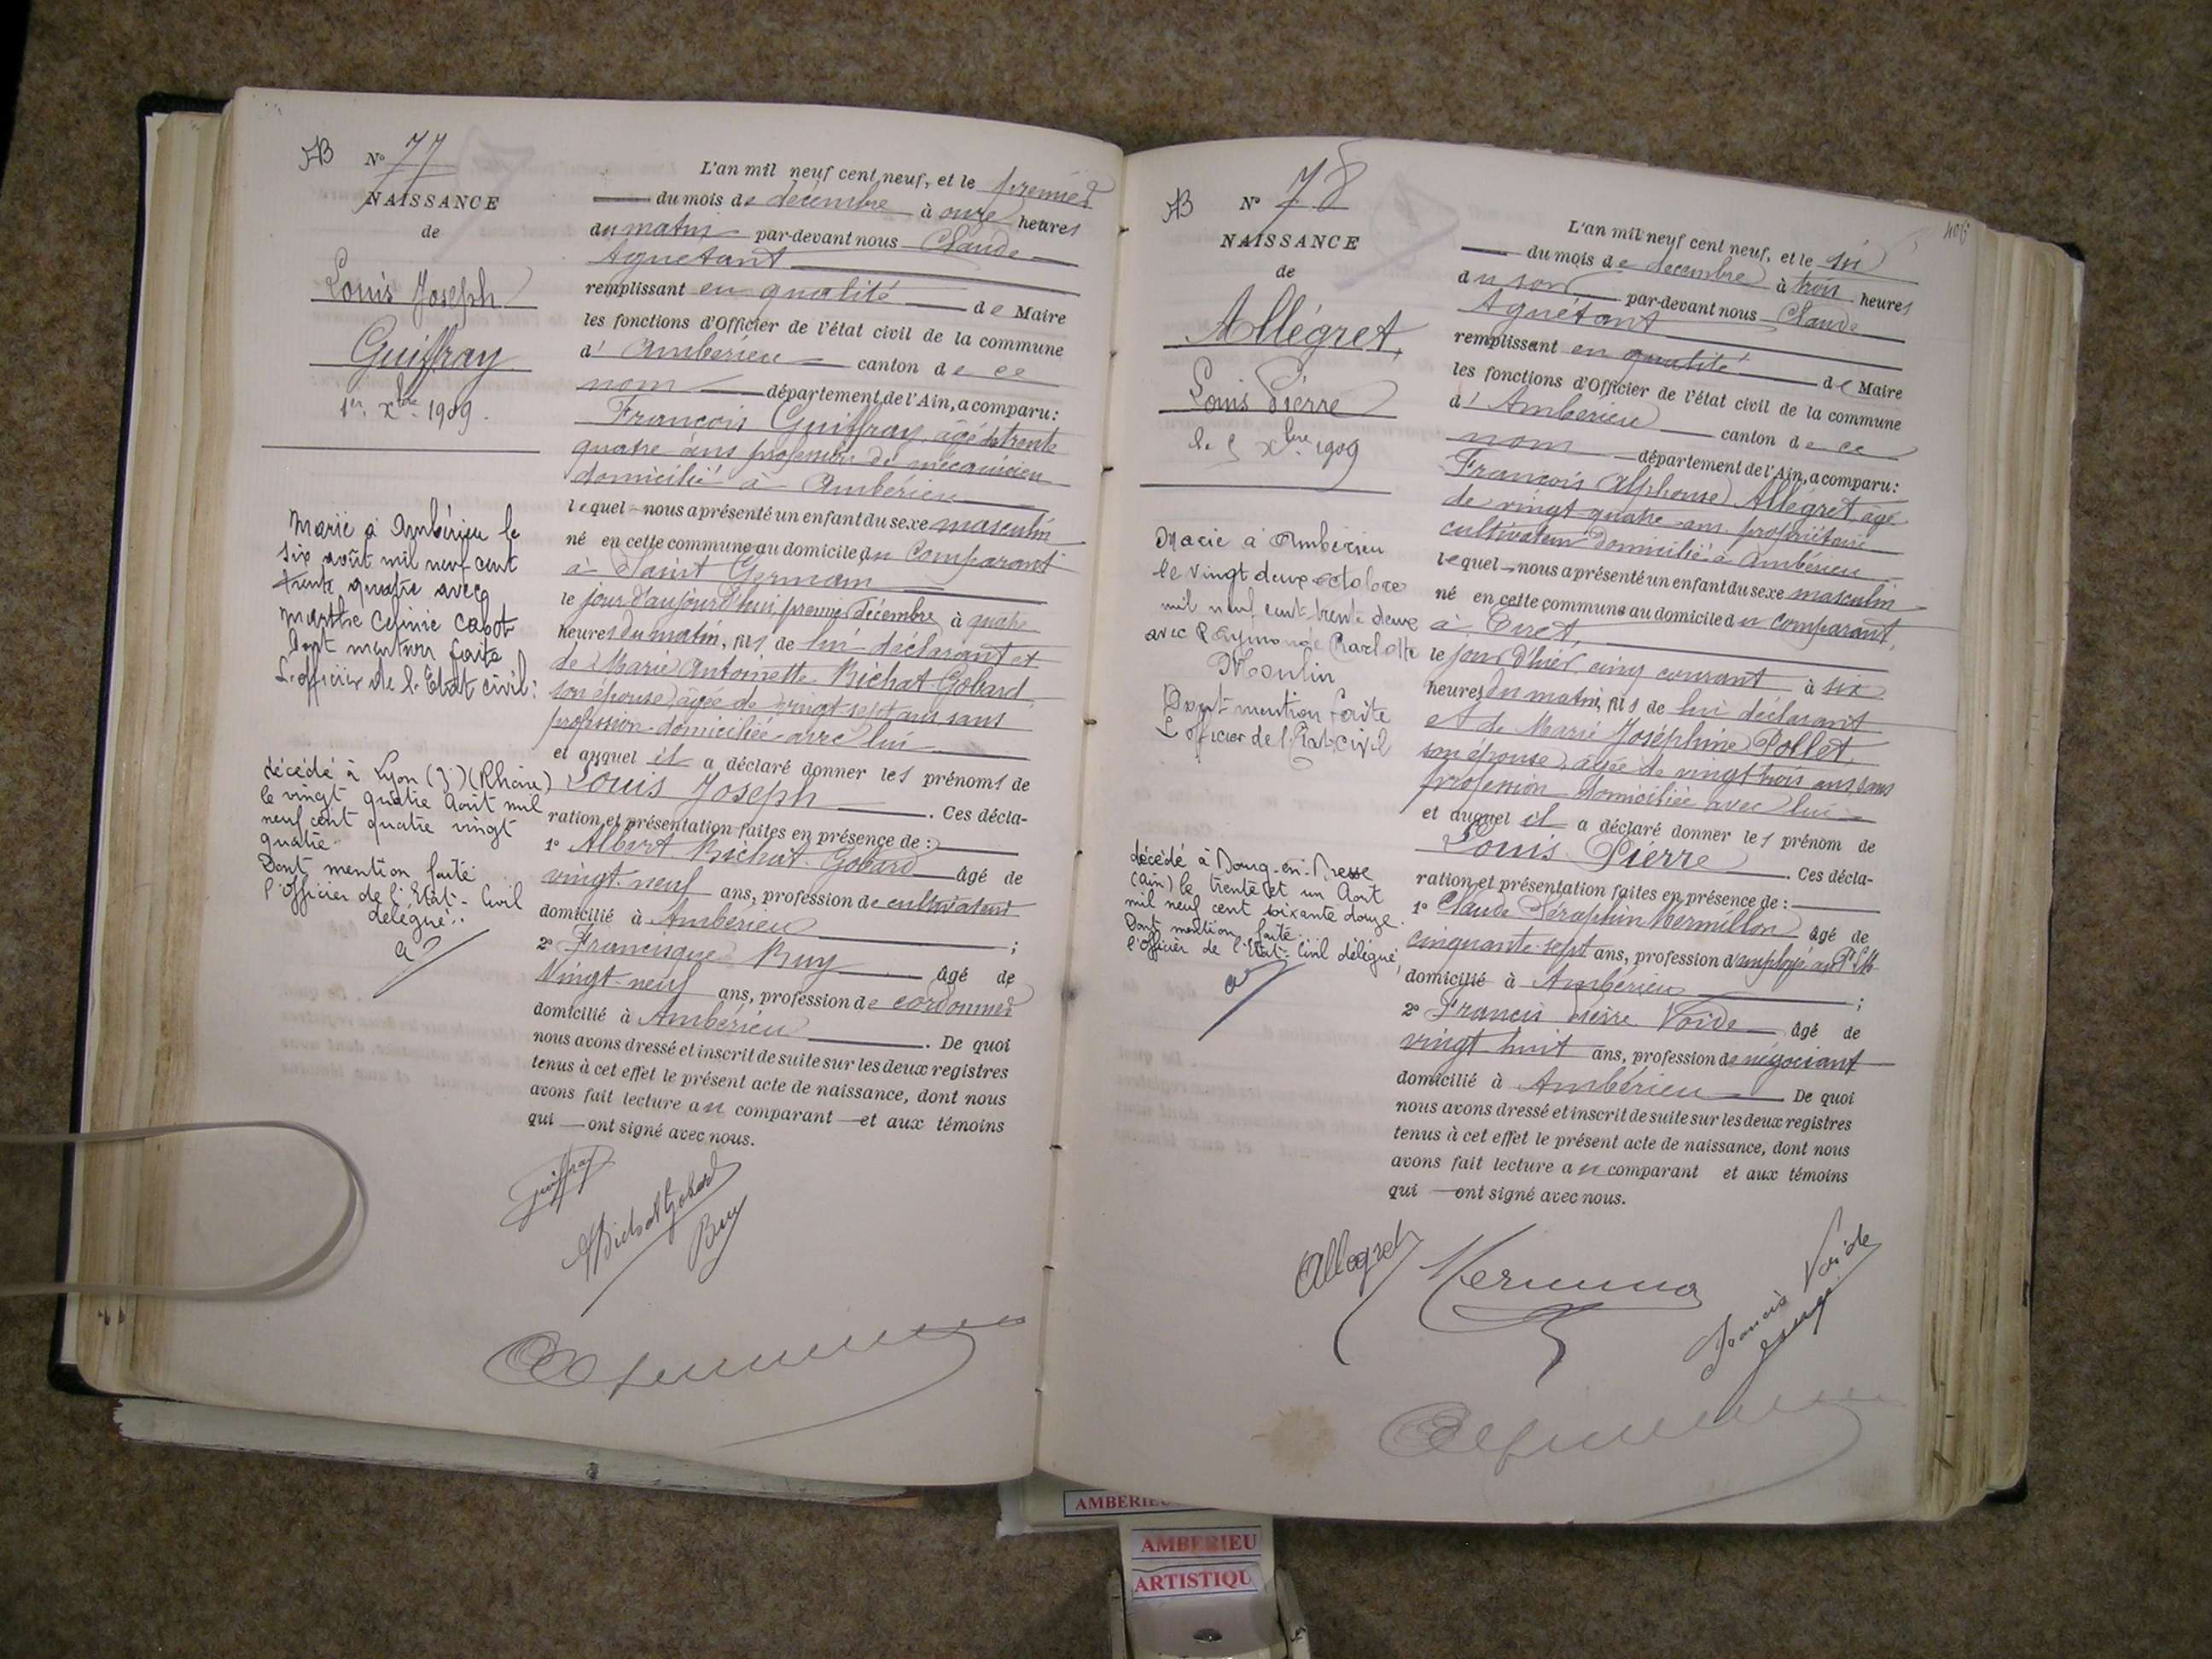 AB N° 77
NAISSANCE
de
Louis Joseph
Guiffray
1er Xbre 1909.
Marié à Ambérieu le
six août mil neuf cent
trente quatre avec
Marthe Celinie Cabot
Dont mention faite
L'officier de l'Etat civil:
décédé à Lyon (3) (Rhône)
le vingt quatre Août mil
neuf cent quatre vingt
quatre
Dont mention faite
l'Officier de l'Etat-Civil
délégué..
L'an mil neuf cent neuf, et le premier
du mois de décembre à onze heures
du matin par-devant nous Claude
Aguétant
remplissant en qualité de Maire
les fonctions d'Officier de l'état civil de la commune
d' Ambérieu canton de ce
nom département de l'Ain, a comparu:
François Guiffray âgé de trente
quatre ans profession de mécanicien
domicilié à Ambérieu
lequel nous a présenté un enfant du sexe masculin
né en cette commune au domicile du comparant
à Saint Germain
le jour d'aujourd'hui premier décembre à quatre
heures du matin, fils de lui déclarant et
de Marie Antoinette Bichat-Gobard
son épouse, âgée de vingt-sept ans sans
profession domiciliée avec lui
et auquel il a déclaré donner les prénoms de
Louis Joseph . Ces décla-
ration et présentation faites en présence de :
1° Albert Bichat-Gobard âgé de
vingt-neuf ans, profession de cultivateur
domicilié à Ambérieu ;
2° Francisque Buy âgé de
vingt-neuf ans, profession de cordonnier
domicilié à Ambérieu . De quoi
nous avons dressé et inscrit de suite sur les deux registres
tenus à cet effet le présent acte de naissance, dont nous
avons fait lecture au comparant et aux témoins
qui ont signé avec nous.
Guiffray
A Bichat Gobard
Buy
AB N° 78
NAISSANCE
de
Allégret,
Louis Pierre
le 5 Xbre 1909
Marié à Ambérieu
le vingt deux octobre
mil neuf cent trente deux
avec Raymonde Charlotte
Moulin
Dont mention faite
L'officier de l'Etat civil
décédé à Bourg-en-Bresse
(Ain) le trente et un Août
mil neuf cent soixante douze.
Dont mention faite.
l'Officier de l'Etat-Civil délégué,
406
L'an mil neuf cent neuf, et le six
du mois de décembre à trois heures
du soir par-devant nous Claude
Aguétant
remplissant en qualité de Maire
les fonctions d'Officier de l'état civil de la commune
d' Ambérieu canton de ce
nom département de l'Ain, a comparu:
François Alphonse Allégret, âgé
de vingt-quatre ans propriétaire
cultivateur domicilié à Ambérieu
lequel nous a présenté un enfant du sexe masculin
né en cette commune au domicile du comparant,
à Tiret,
le jour d'hier cinq courant à six
heures du matin, fils de lui déclarant
et de Marie Joséphine Pollet,
son épouse, âgée de vingt trois ans, sans
profession domiciliée avec lui
et auquel il a déclaré donner les prénom de
Louis Pierre . Ces décla-
ration et présentation faites en présence de :
1° Claude Séraphin Mermillon âgé de
cinquante-sept ans, profession d'employé au P.L.M
domicilié à Ambérieu ;
2° Francis Pierre Voide âgé de
vingt huit ans, profession de négociant
domicilié à Ambérieu De quoi
nous avons dressé et inscrit de suite sur les deux registres
tenus à cet effet le présent acte de naissance, dont nous
avons fait lecture au comparant et aux témoins
qui ont signé avec nous.
Allegret
Francis Voide
AMBERIEU
AMBERIEU
ARTISTIQU